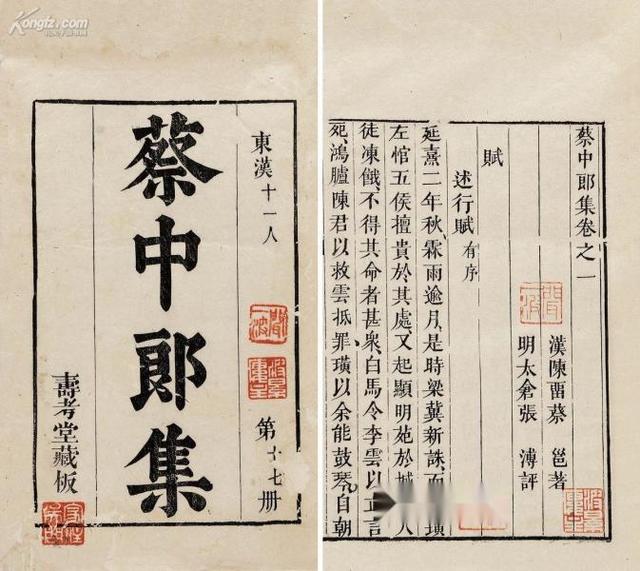 Kongfz.com
東漢十一人
第十七册
蔡中郎集
壽考堂藏板
蔡中郎集卷之一
漢陳畱蔡 邕著
明太倉張 溥評
賦
述行賦 有序
延熹二年秋、霖雨逾月、是時梁冀新誅、而 璜
左悺五侯擅貴於其處、又起顯明苑於城 人
徒凍餓、不得其命者甚衆、白馬令李雲以 言
死、鴻臚陳君以救雲抵罪、璜以余能鼓琴、自朝